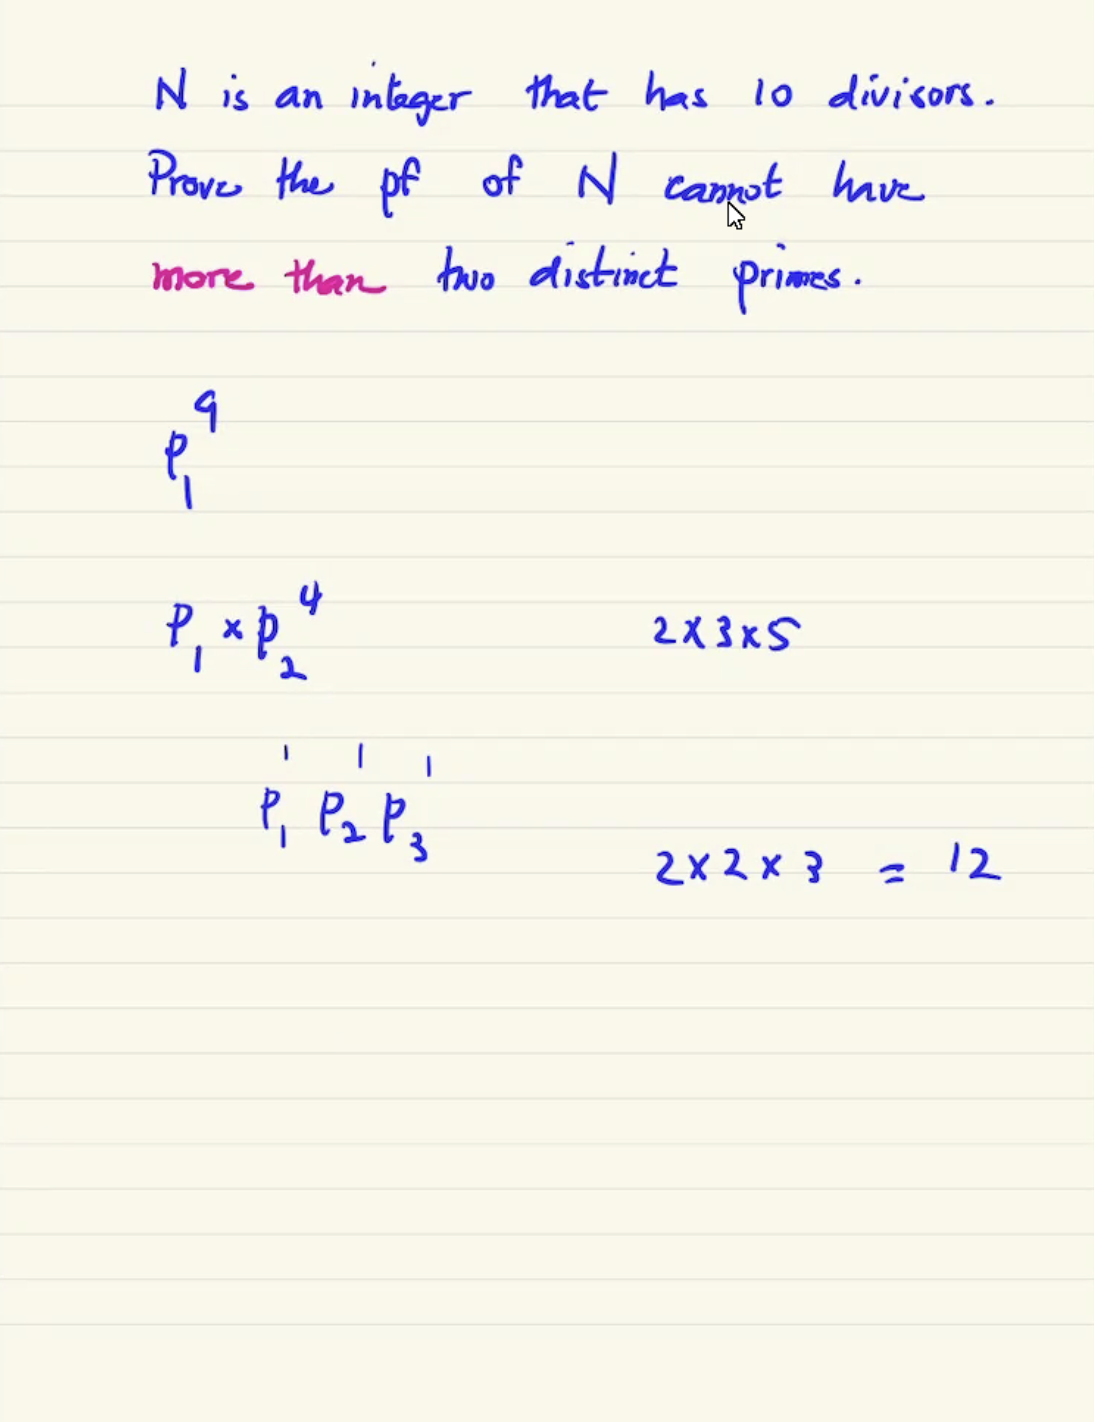 N is an integer that has 10 divisors.
Prove the pf of N cannot have
more than two distinct primes.
p₁⁹
p₁ × p₂⁴
2 × 3 × 5
p₁¹ p₂¹ p₃¹
2 × 2 × 3 = 12